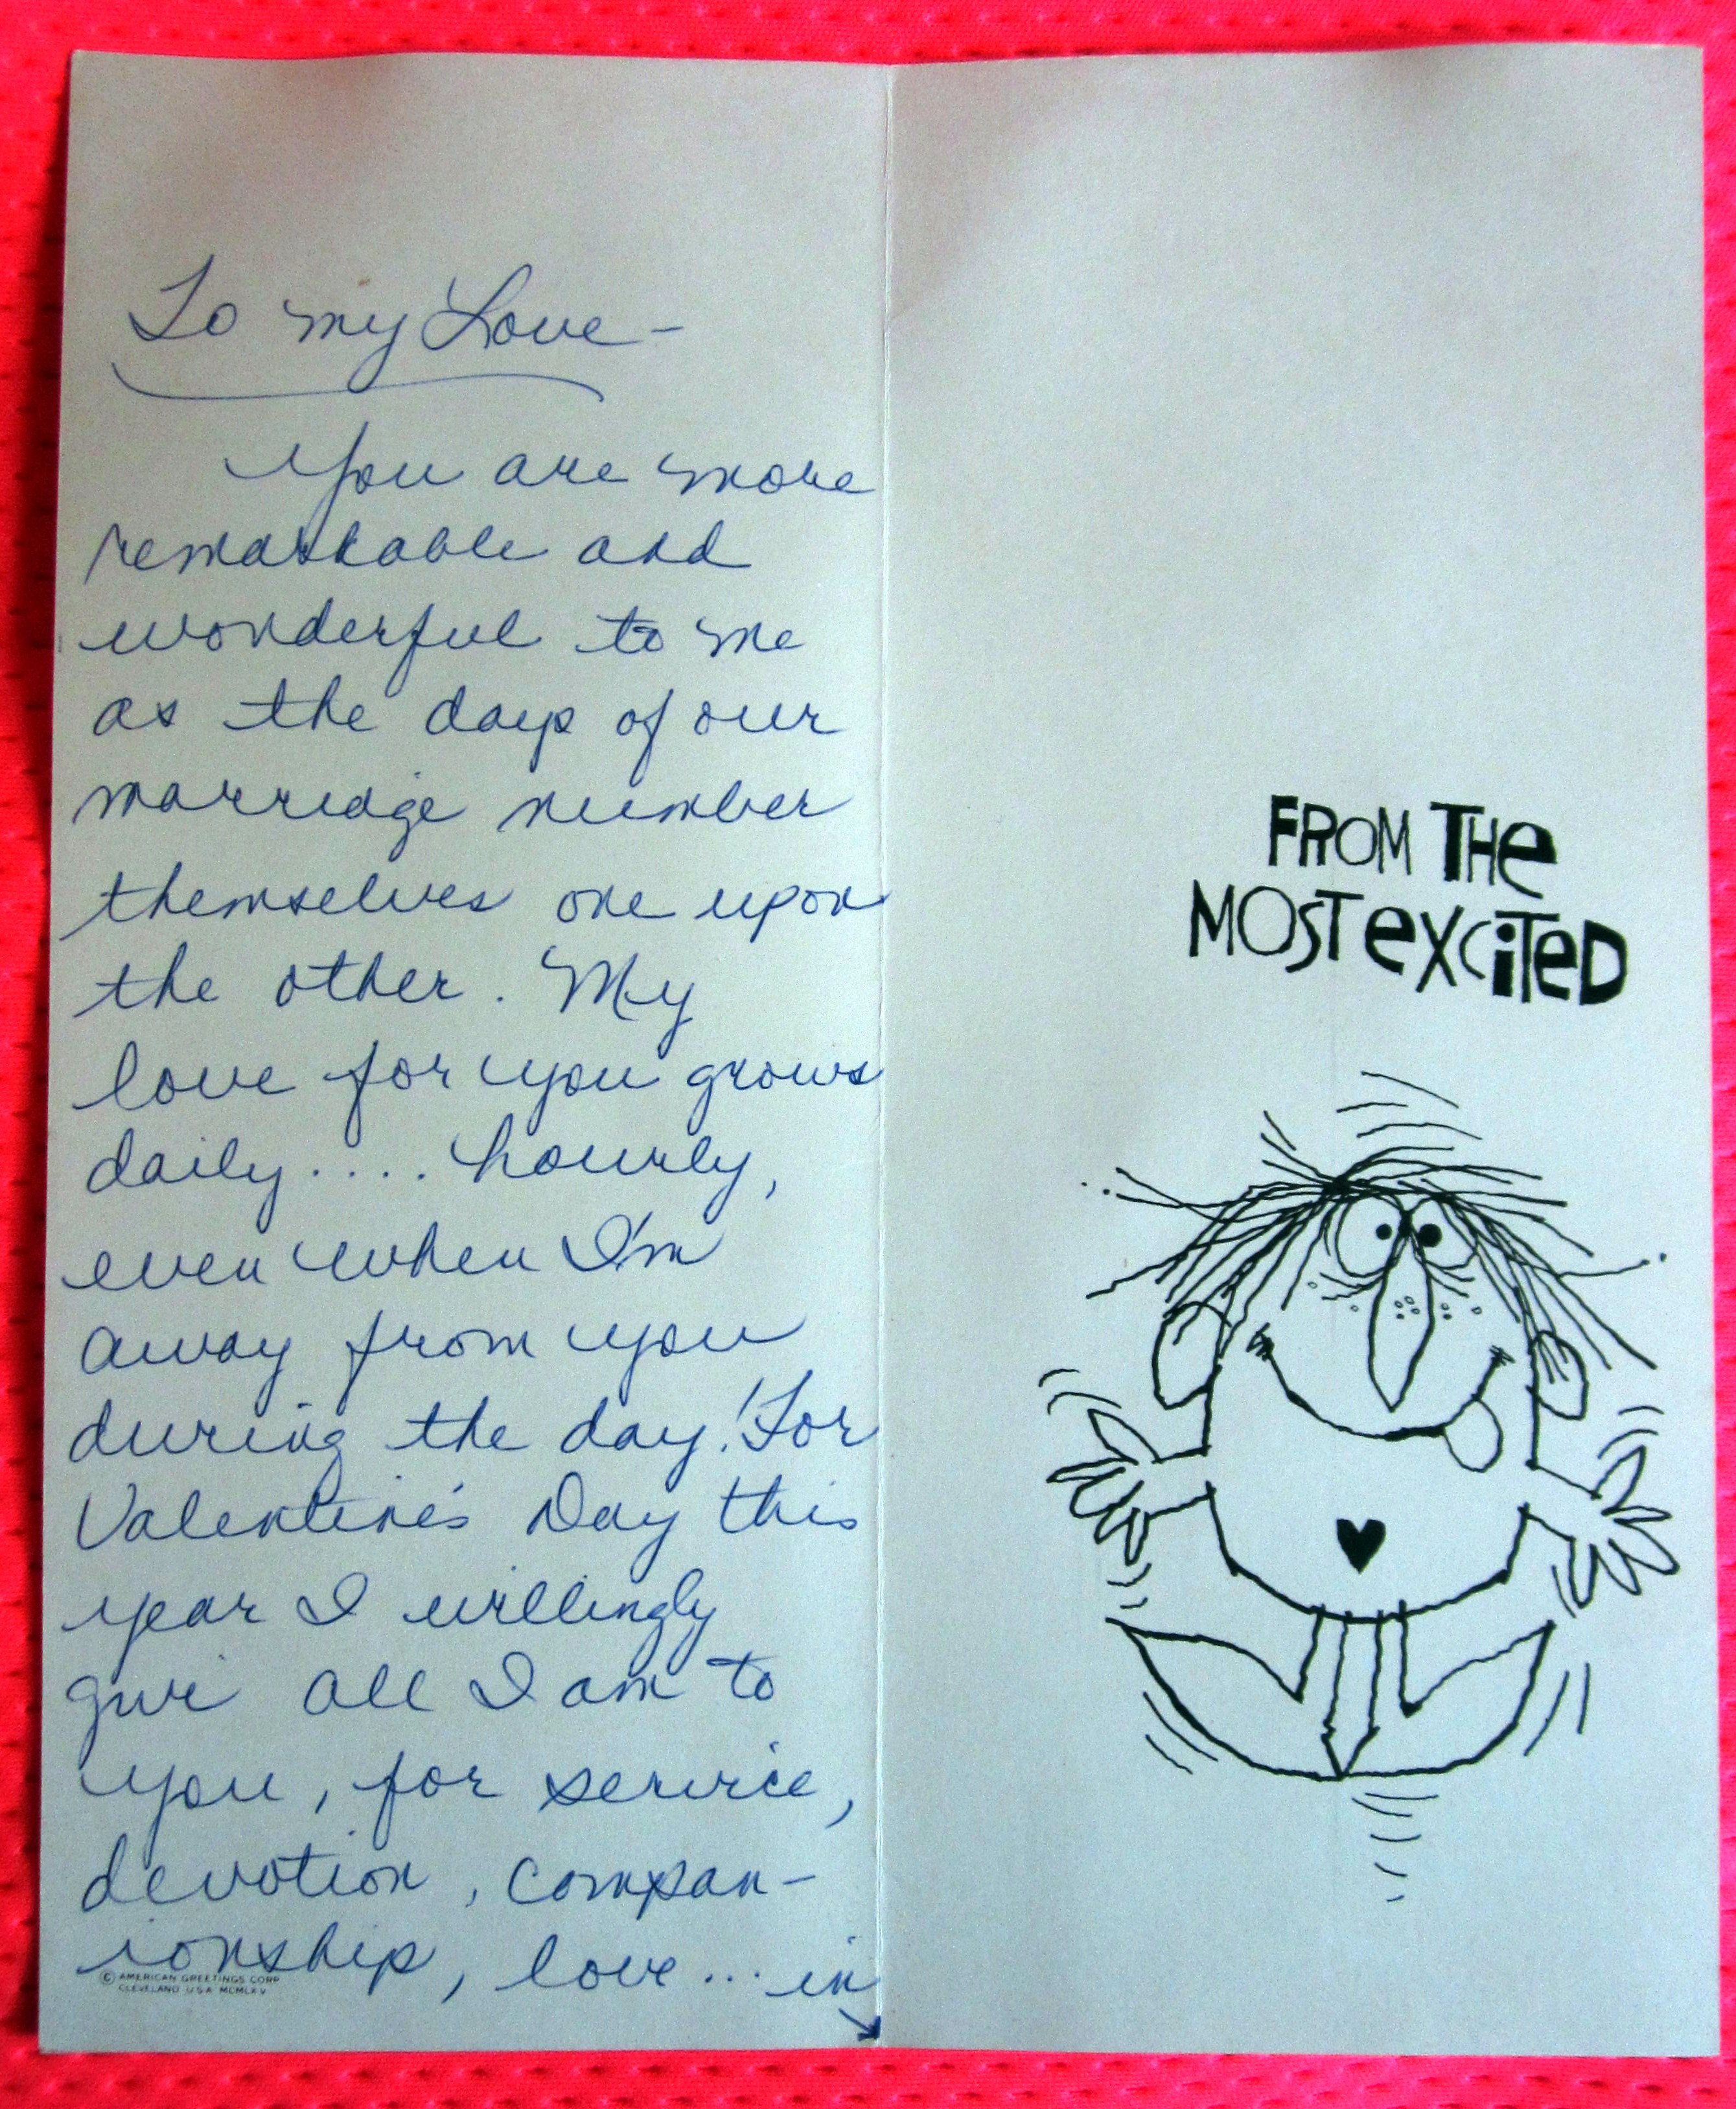 To my Love –
You are more
remarkable and
wonderful to me
as the days of our
marriage number
themselves one upon
the other. My
love for you grows
daily.... hourly,
even when I'm
away from you
during the day! For
Valentine's Day this
year I willingly
give all I am to
you, for service,
devotion, compan-
ionship, love... in
© AMERICAN GREETINGS CORP
CLEVELAND U S A MCMLXV
FROM THe
MOST eXCiTeD